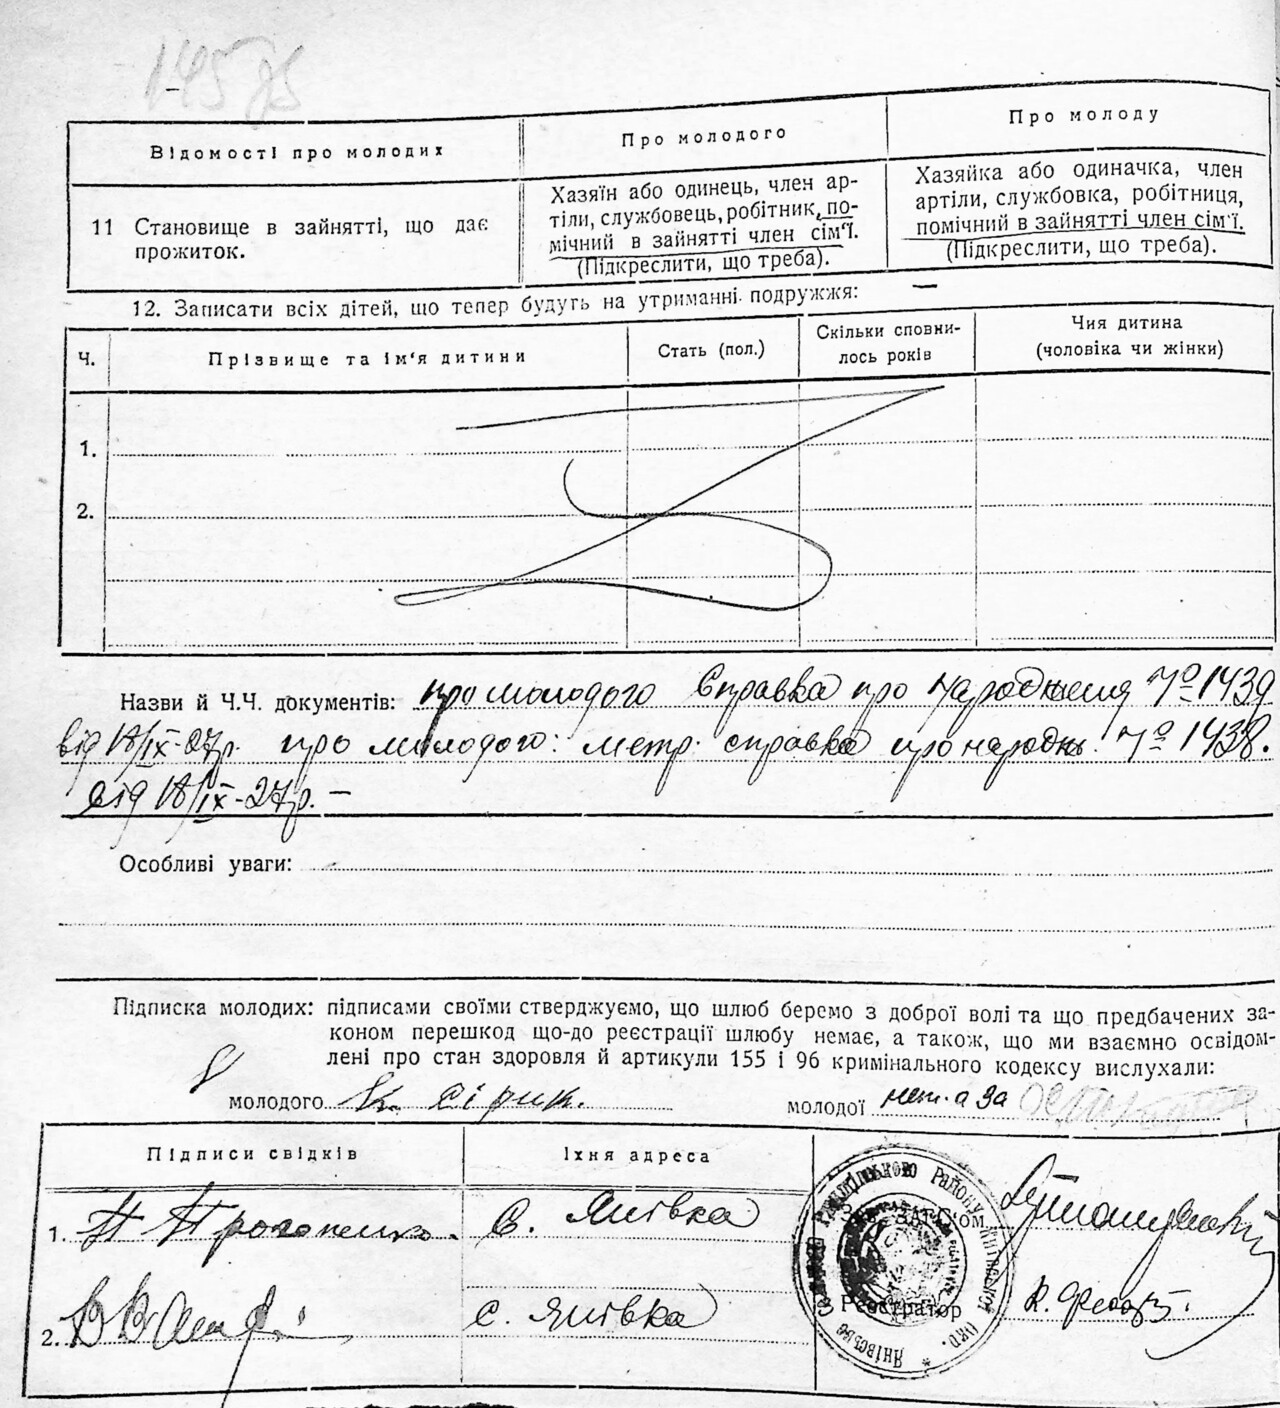 145
Відомості про молодих
Про молодого
Про молоду
11 Становище в зайнятті, що дає
прожиток.
Хазяїн або одинець, член ар-
тіли, службовець, робітник, по-
мічний в зайнятті член сім'ї.
(Підкреслити, що треба).
Хазяйка або одиначка, член
артіли, службовка, робітниця,
помічний в зайнятті член сім'ї.
(Підкреслити, що треба).
12. Записати всіх дітей, що тепер будуть на утриманні подружжя: —
Ч.
Прізвище та ім'я дитини
Стать (пол.)
Скільки сповни-
лось років
Чия дитина
(чоловіка чи жінки)
1.
2.
Назви й Ч.Ч. документів: про молодого Справка про народження № 1439
від 18/IX-27р. про молодого: метр. справка про народж. № 1438.
від 18/IX-27р. —
Особливі уваги:
Підписка молодих: підписами своїми стверджуємо, що шлюб беремо з доброї волі та що предбачених за-
коном перешкод що-до реєстрації шлюбу немає, а також, що ми взаємно освідом-
лені про стан здоровля й артикули 155 і 96 кримінального кодексу вислухали:
молодого К. Сірик.
молодої неп. а за
Підписи свідків
Їхня адреса
1.
с. Янівка
2.
с. Янівка
Зав. ЗАГС'ом
Реєстратор